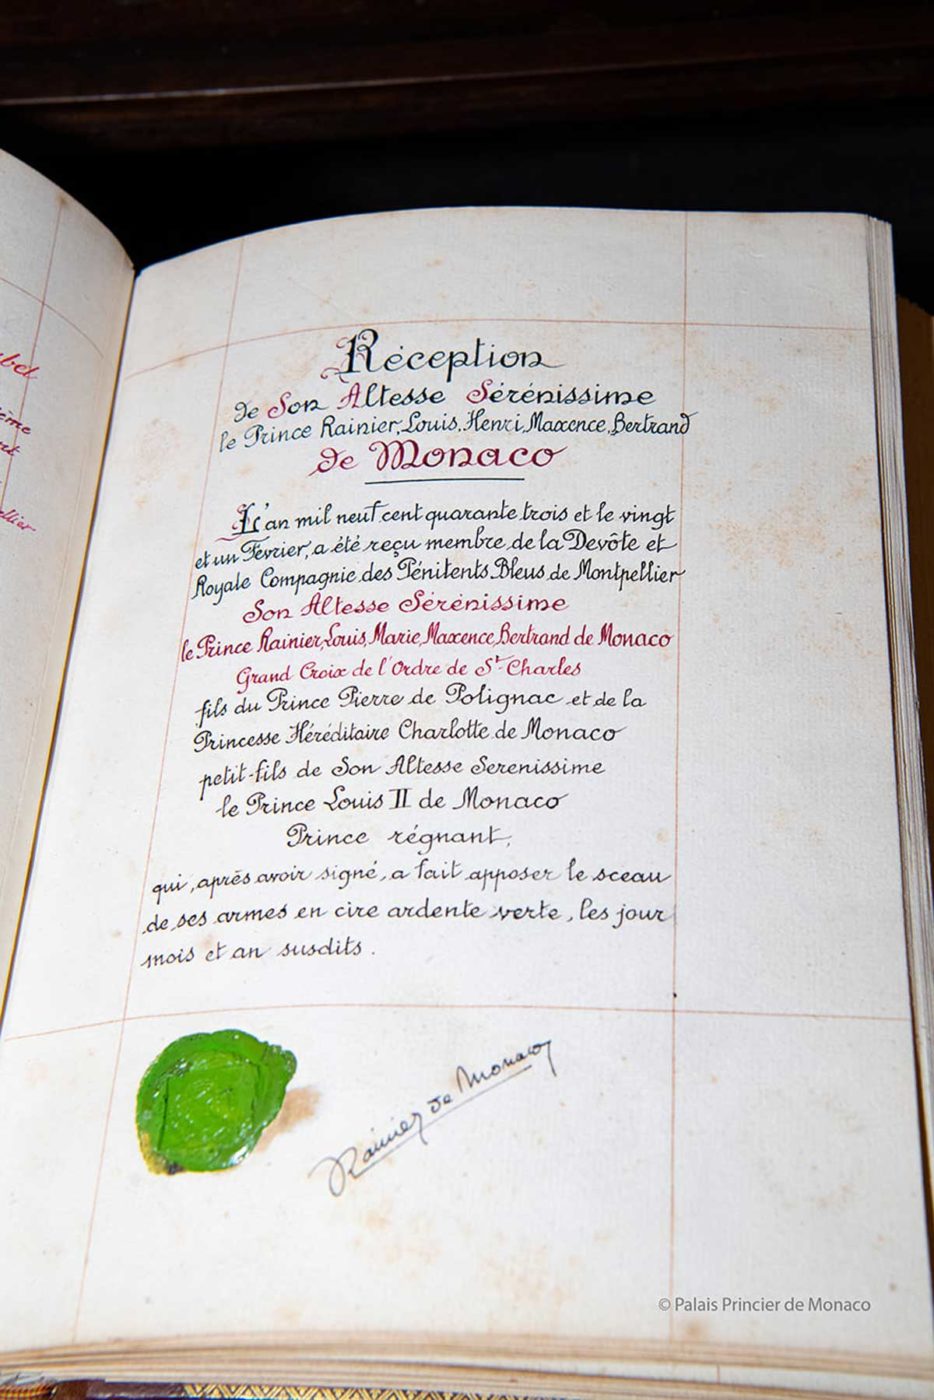 Réception
de Son Altesse Sérénissime
le Prince Rainier, Louis, Henri, Maxence, Bertrand
de Monaco
L'an mil neuf cent quarante trois et le vingt
et un Février, a été reçu membre de la Devôte et
Royale Compagnie des Pénitents Bleus de Montpellier
Son Altesse Sérénissime
le Prince Rainier, Louis, Marie, Maxence, Bertrand de Monaco
Grand Croix de l'Ordre de St Charles
fils du Prince Pierre de Polignac et de la
Princesse Héréditaire Charlotte de Monaco
petit-fils de Son Altesse Serenissime
le Prince Louis II de Monaco
Prince régnant,
qui, après avoir signé, a fait apposer le sceau
de ses armes en cire ardente verte, les jour
mois et an susdits.
Rainier de Monaco
© Palais Princier de Monaco